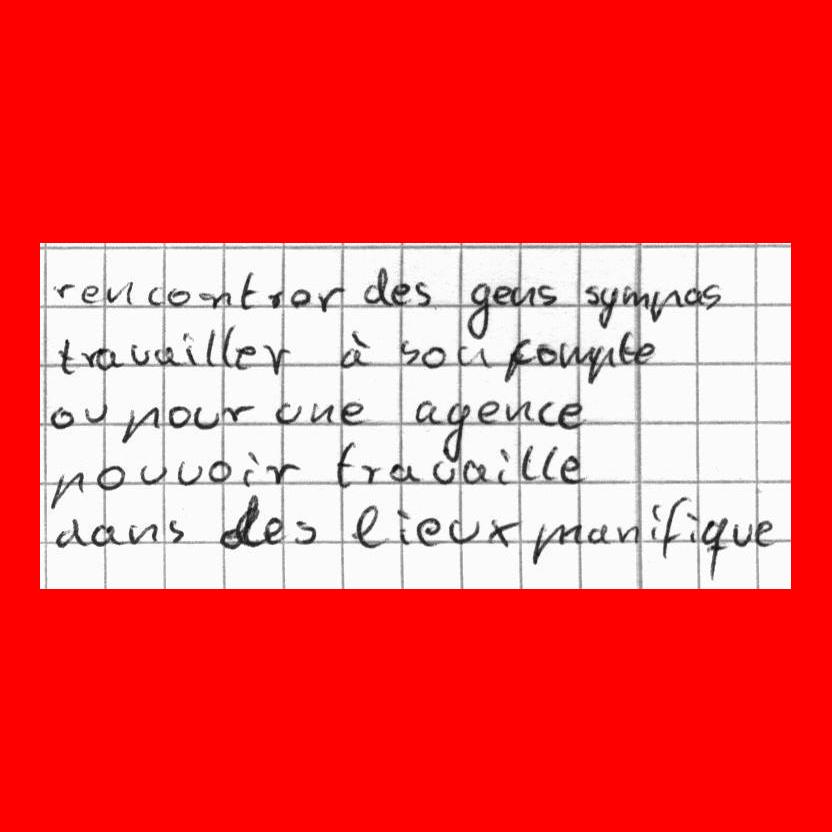 rencontrer des gens sympas
travailler à son compte
ou pour une agence
pouvoir travaille
dans des lieux manifique